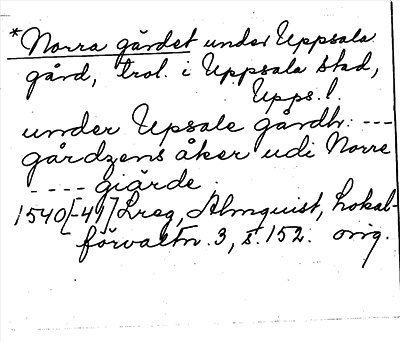 *Norra gärdet under Uppsala
gård, trol. i Uppsala stad,
Upps. l.
under Upsale gårdh: ---
gårdzens åker udi Norre
---- giärde.
1540[-49] Lreg, Almquist, Lokal-
förvaltn. 3, s. 152. orig.